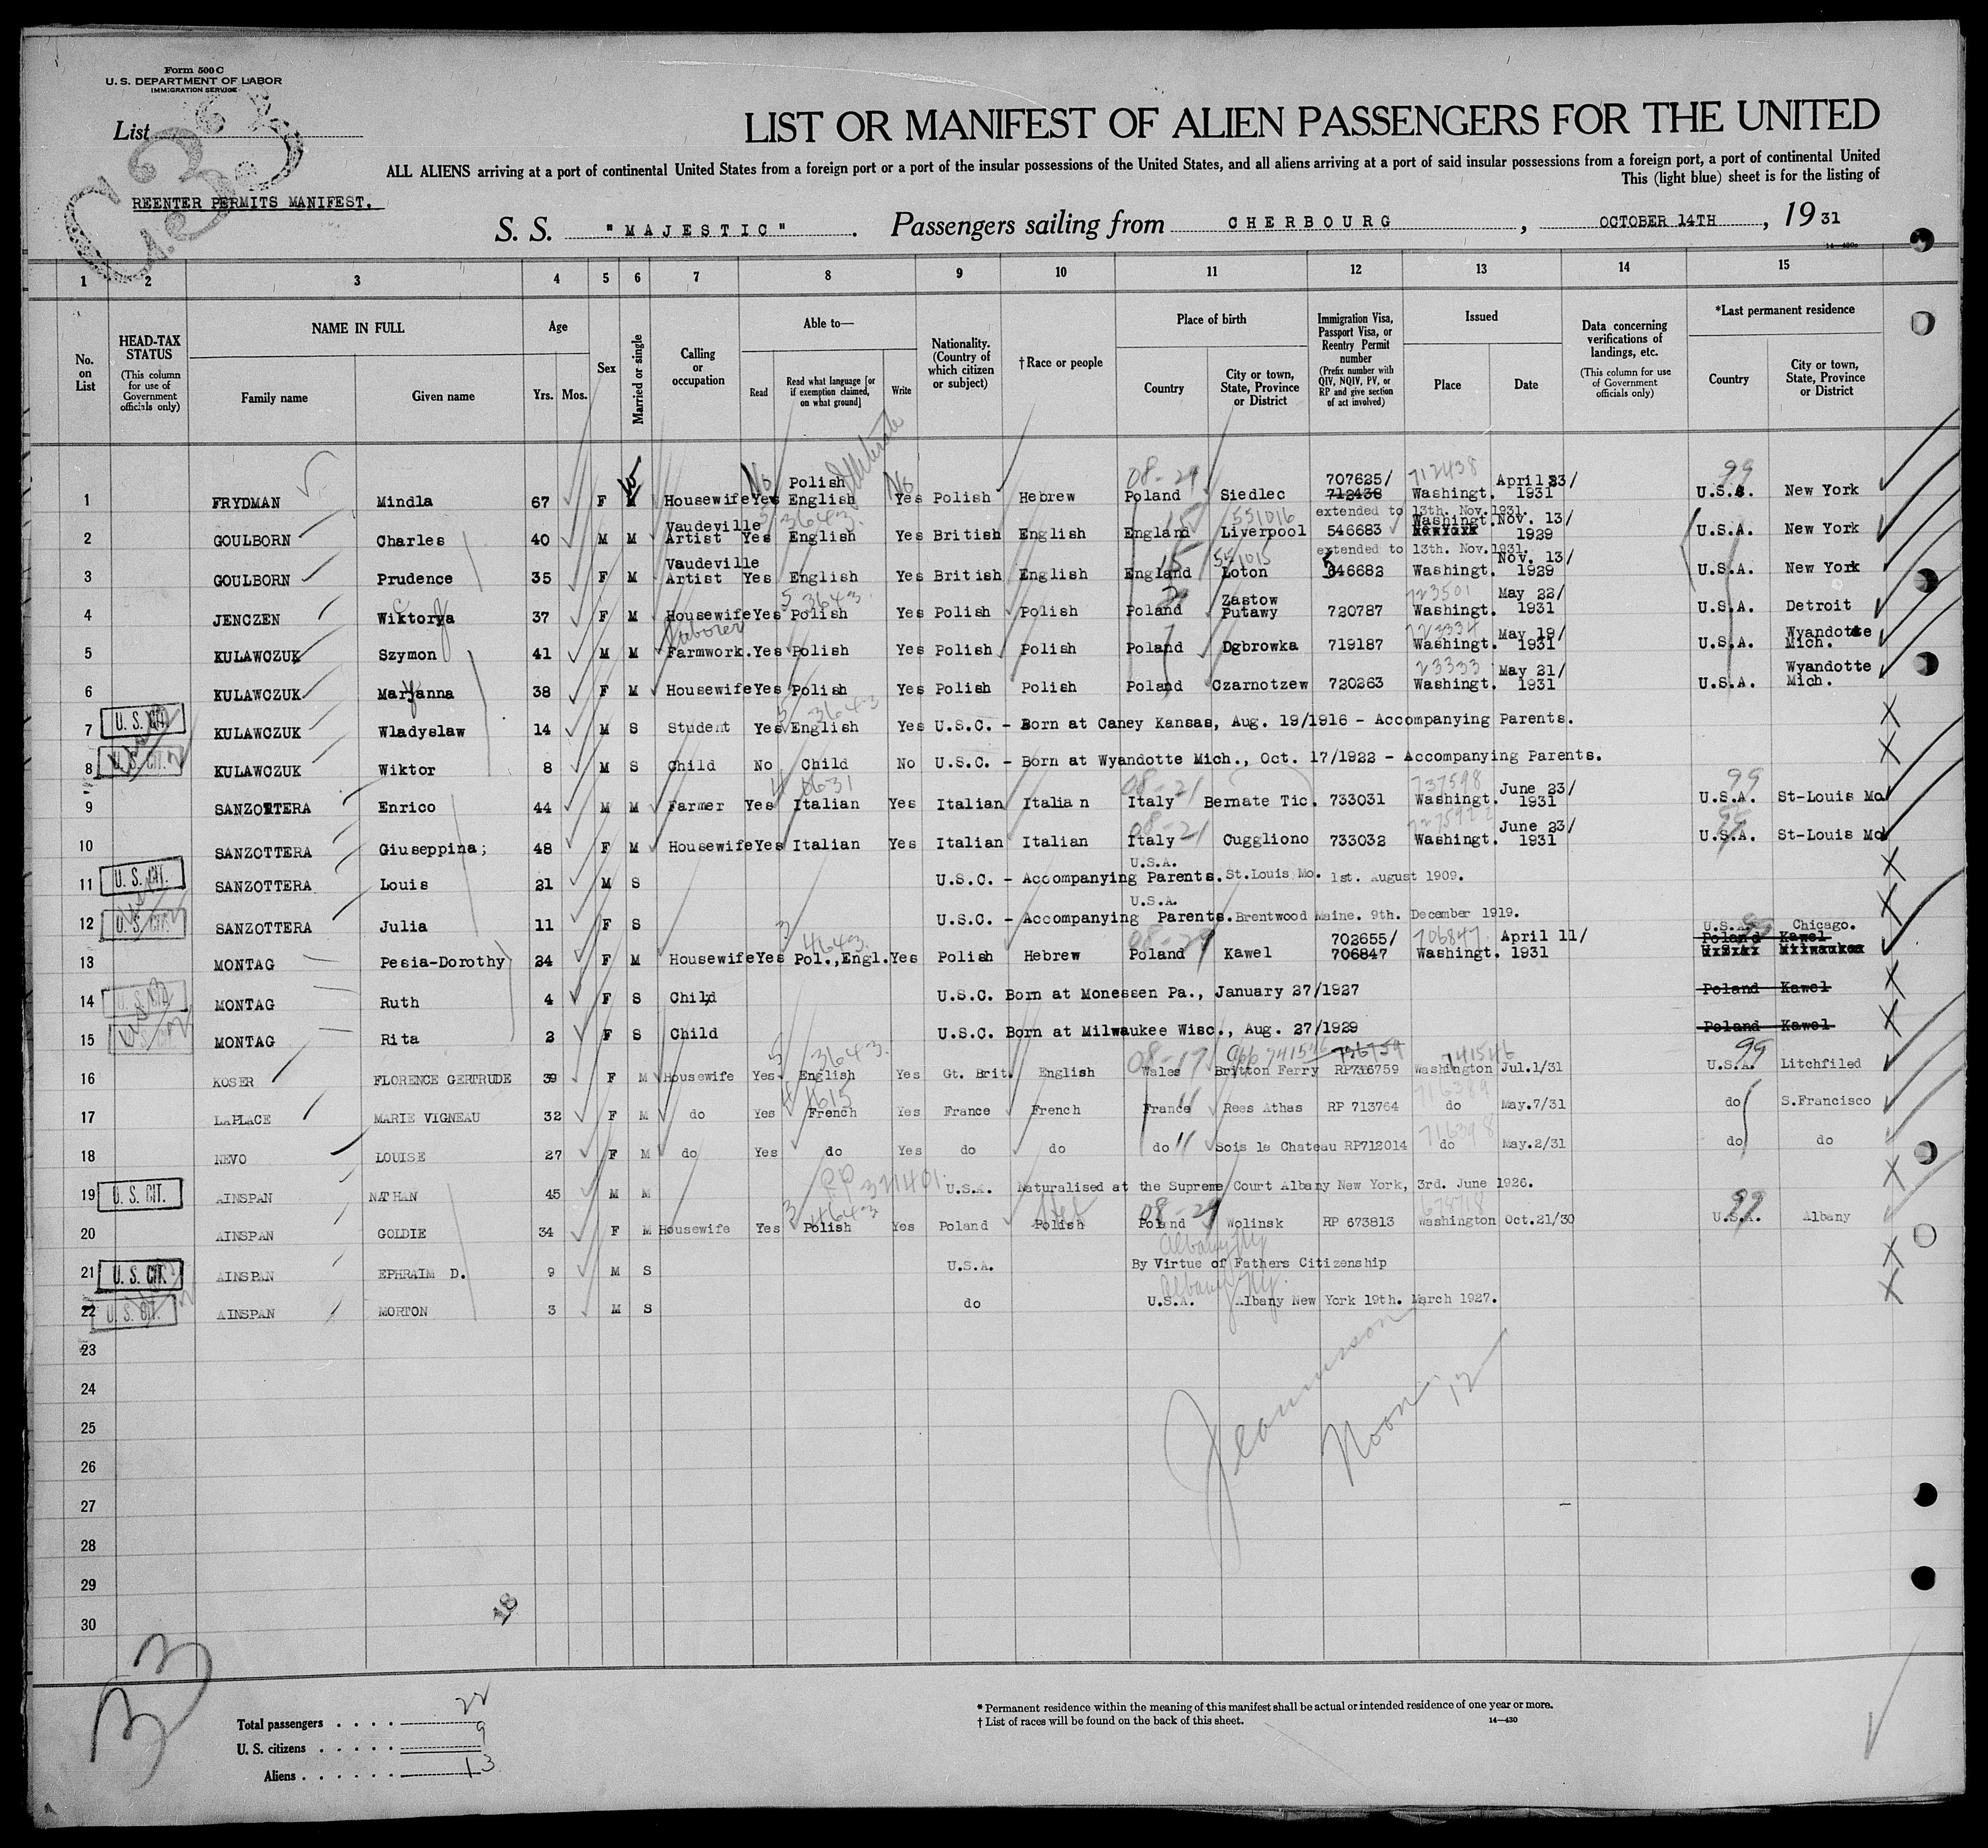 Form 500 C
U. S. DEPARTMENT OF LABOR
IMMIGRATION SERVICE
List
LIST OR MANIFEST OF ALIEN PASSENGERS FOR THE UNITED
ALL ALIENS arriving at a port of continental United States from a foreign port or a port of the insular possessions of the United States, and all aliens arriving at a port of said insular possessions from a foreign port, a port of continental United
This (light blue) sheet is for the listing of
REENTER PERMITS MANIFEST.
S. S. "MAJESTIC". Passengers sailing from CHERBOURG, OCTOBER 14TH, 1931
1 2 3 4 5 6 7 8 9 10 11 12 13 14 15
No. on List
HEAD-TAX STATUS (This column for use of Government officials only)
NAME IN FULL Family name Given name
Age Yrs. Mos.
Sex
Married or single
Calling or occupation
Able to— Read Read what language [or if exemption claimed, on what ground] Write
Nationality. (Country of which citizen or subject)
†Race or people
Place of birth Country City or town, State, Province or District
Immigration Visa, Passport Visa, or Reentry Permit number (Prefix number with QIV, NQIV, PV, or RP and give section of act involved)
Issued Place Date
Data concerning verifications of landings, etc. (This column for use of Government officials only)
*Last permanent residence Country City or town, State, Province or District
1 FRYDMAN Mindla 67 F M Housewife Yes No Polish English Yes No Polish Hebrew 08-29 Poland Siedlec 707625/ 712438 712438 Washingt. April 23/ 1931 99 U.S.A. New York
extended to 13th. Nov. 1931.
2 GOULBORN Charles 40 M M Vaudeville Artist Yes English Yes British English England 551016 Liverpool 546683 Washingt. Nov. 13/ 1929 U.S.A. New York
extended to 13th. Nov. 1931.
3 GOULBORN Prudence 35 F M Vaudeville Artist Yes English Yes British English England 551015 Loton 546682 Washingt. Nov. 13/ 1929 U.S.A. New York
4 JENCZEN Wiktorya 37 F M Housewife Yes Polish Yes Polish Polish Poland Zastow Putawy 720787 723501 Washingt. May 22/ 1931 U.S.A. Detroit
5 KULAWCZUK Szymon 41 M M Laborer Farmwork. Yes Polish Yes Polish Polish Poland Dgbrowka 719187 723334 Washingt. May 19/ 1931 U.S.A. Wyandotte Mich.
6 KULAWCZUK Maryanna 38 F M Housewife Yes Polish Yes Polish Polish Poland Czarnotzew 720263 23333 Washingt. May 21/ 1931 U.S.A. Wyandotte Mich.
7 U. S. CIT. KULAWCZUK Wladyslaw 14 M S Student Yes English Yes U.S.C. - Born at Caney Kansas, Aug. 19/1916 - Accompanying Parents.
8 U. S. CIT. KULAWCZUK Wiktor 8 M S Child No Child No U.S.C. - Born at Wyandotte Mich., Oct. 17/1922 - Accompanying Parents.
9 SANZOTTERA Enrico 44 M M Farmer Yes Italian Yes Italian Italian 08-21 Italy Bernate Tic. 733031 737598 Washingt. June 23/ 1931 99 U.S.A. St-Louis Mo
10 SANZOTTERA Giuseppina; 48 F M Housewife Yes Italian Yes Italian Italian 08-21 Italy Cuggliono 733032 Washingt. June 23/ 1931 U.S.A. St-Louis Mo
11 U. S. CIT. SANZOTTERA Louis 21 M S U.S.C. - Accompanying Parents. U.S.A. St.Louis Mo. 1st. August 1909.
12 U. S. CIT. SANZOTTERA Julia 11 F S U.S.C. - Accompanying Parents. U.S.A. Brentwood Maine. 9th. December 1919.
13 MONTAG Pesia-Dorothy 24 F M Housewife Yes Pol.,Engl. Yes Polish Hebrew Poland Kawel 702655/ 706847 706847 Washingt. April 11/ 1931 U.S.A. Chicago. Poland Kawel Milwaukee
14 U. S. CIT. MONTAG Ruth 4 F S Child U.S.C. Born at Monessen Pa., January 27/1927 Poland Kawel
15 MONTAG Rita 2 F S Child U.S.C. Born at Milwaukee Wisc., Aug. 27/1929 Poland Kawel
16 KOSER FLORENCE GERTRUDE 39 F M Housewife Yes English Yes Gt. Brit. English 08-17 Wales 741546 Britton Ferry 736759 RP736759 741546 Washington Jul.1/31 99 U.S.A. Litchfiled
17 LAPLACE MARIE VIGNEAU 32 F M do Yes French Yes France French France Rees Athas RP 713764 716389 do May.7/31 do S.Francisco
18 NEVO LOUISE 27 F M do Yes do Yes do do do Sois le Chateau RP712014 716398 do May.2/31 do do
19 U. S. CIT. AINSPAN NATHAN 45 M M RP 321401. U.S.A. Naturalised at the Supreme Court Albany New York, 3rd. June 1926.
20 AINSPAN GOLDIE 34 F M Housewife Yes Polish Yes Poland Heb Polish 08-29 Poland Wolinsk RP 673813 678718 Washington Oct.21/30 99 U.S.A. Albany
21 U. S. CIT. AINSPAN EPHRAIM D. 9 M S U.S.A. Albany NY By Virtue of Fathers Citizenship
22 U. S. CIT. AINSPAN MORTON 3 M S do Albany NY. U.S.A. Albany New York 19th. March 1927.
23
24
25
26
27
28
29
30
18
33
Noon 12
Total passengers . . . . 22
U. S. citizens . . . . . 9
Aliens . . . . . . 13
* Permanent residence within the meaning of this manifest shall be actual or intended residence of one year or more.
† List of races will be found on the back of this sheet. 14—430